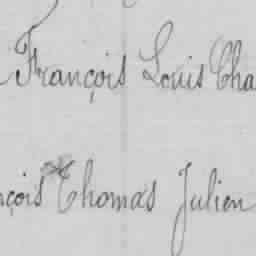 François Louis Cha
nçois Thomas Julien